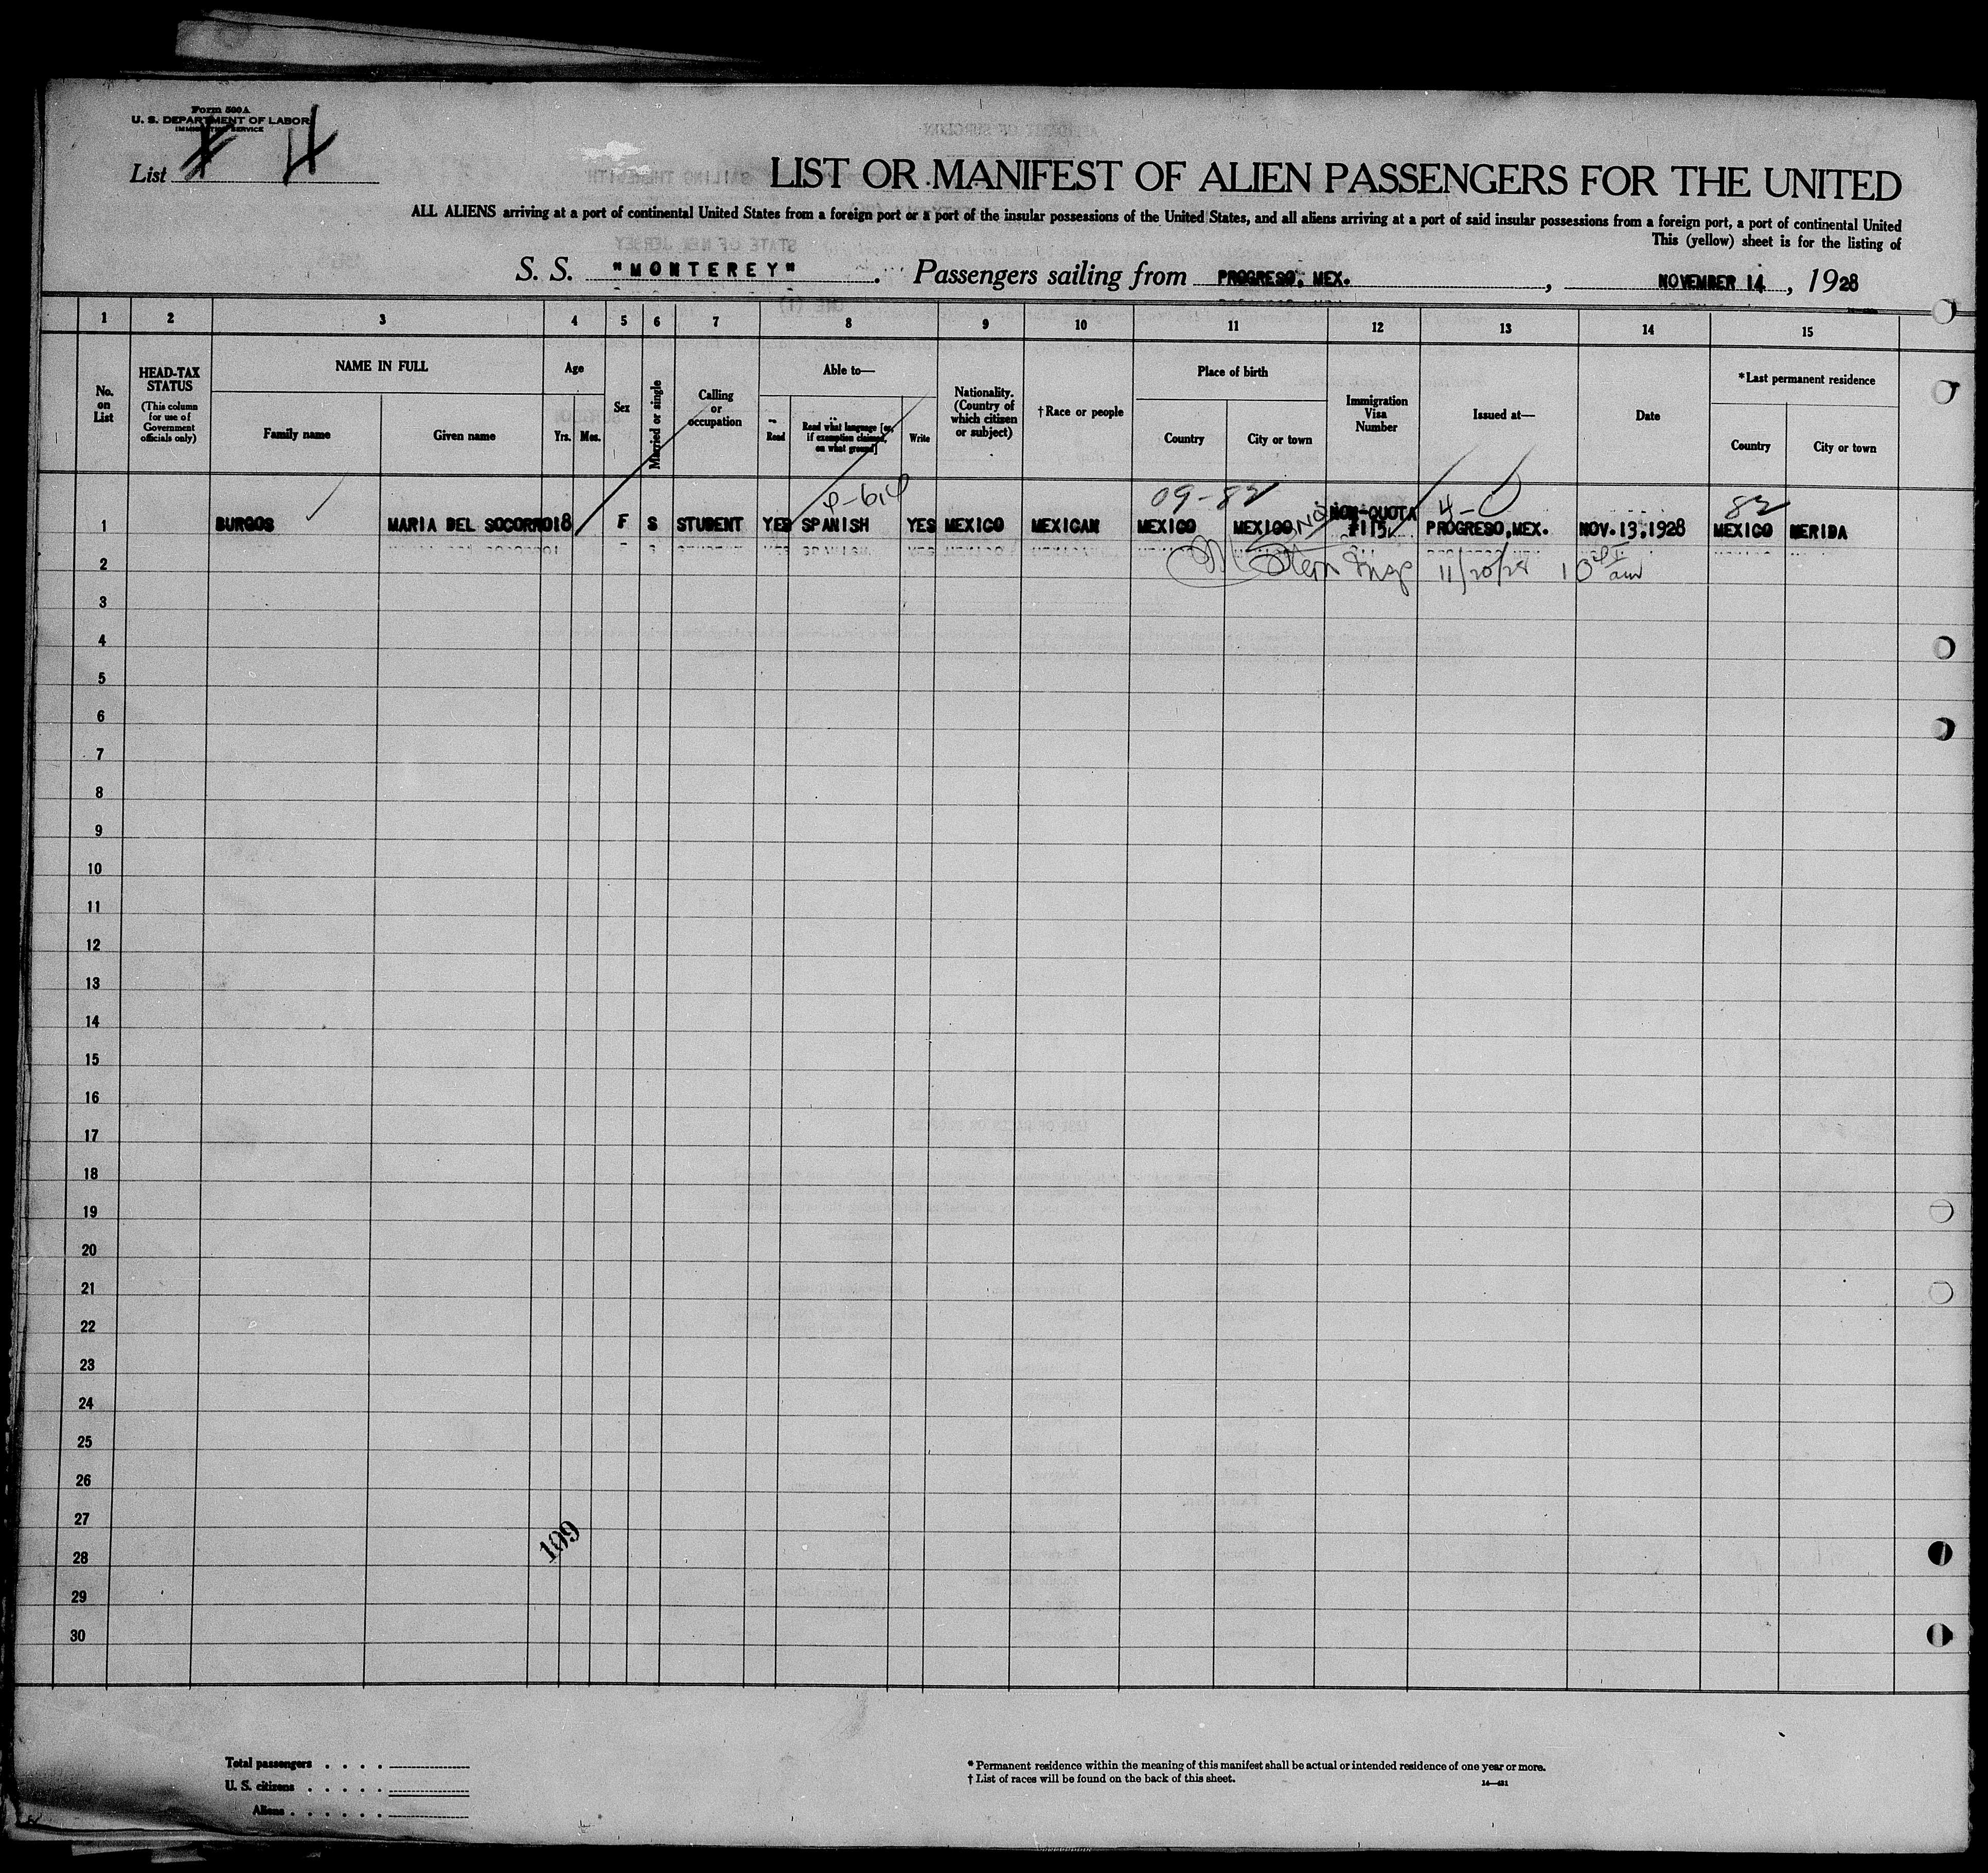 Form 500 A
U. S. DEPARTMENT OF LABOR
IMMIGRATION SERVICE
List 4
LIST OR MANIFEST OF ALIEN PASSENGERS FOR THE UNITED
ALL ALIENS arriving at a port of continental United States from a foreign port or a port of the insular possessions of the United States, and all aliens arriving at a port of said insular possessions from a foreign port, a port of continental United
This (yellow) sheet is for the listing of
S. S. "MONTEREY". Passengers sailing from PROGRESO, MEX., NOVEMBER 14, 1928
1 2 3 4 5 6 7 8 9 10 11 12 13 14 15
No. on List
HEAD-TAX STATUS
(This column for use of Government officials only)
NAME IN FULL
Family name
Given name
Age
Yrs. Mos.
Sex
Married or single
Calling or occupation
Able to—
Read
Read what language [or, if exemption claimed, on what ground]
Write
Nationality. (Country of which citizen or subject)
†Race or people
Place of birth
Country
City or town
Immigration Visa Number
Issued at—
Date
*Last permanent residence
Country
City or town
09-82 82
1 BURGOS MARIA DEL SOCORRO 18 F S STUDENT YES SPANISH YES MEXICO MEXICAN MEXICO MEXICO, NON-QUOTA #115 PROGRESO, MEX. NOV. 13, 1928 MEXICO MERIDA
2 Stern Insp 11/20/28 10 am
3
4
5
6
7
8
9
10
11
12
13
14
15
16
17
18
19
20
21
22
23
24
25
26
27
109
28
29
30
Total passengers . . . .
U. S. citizens . . . . .
Aliens . . . . . .
* Permanent residence within the meaning of this manifest shall be actual or intended residence of one year or more.
† List of races will be found on the back of this sheet.
14—431